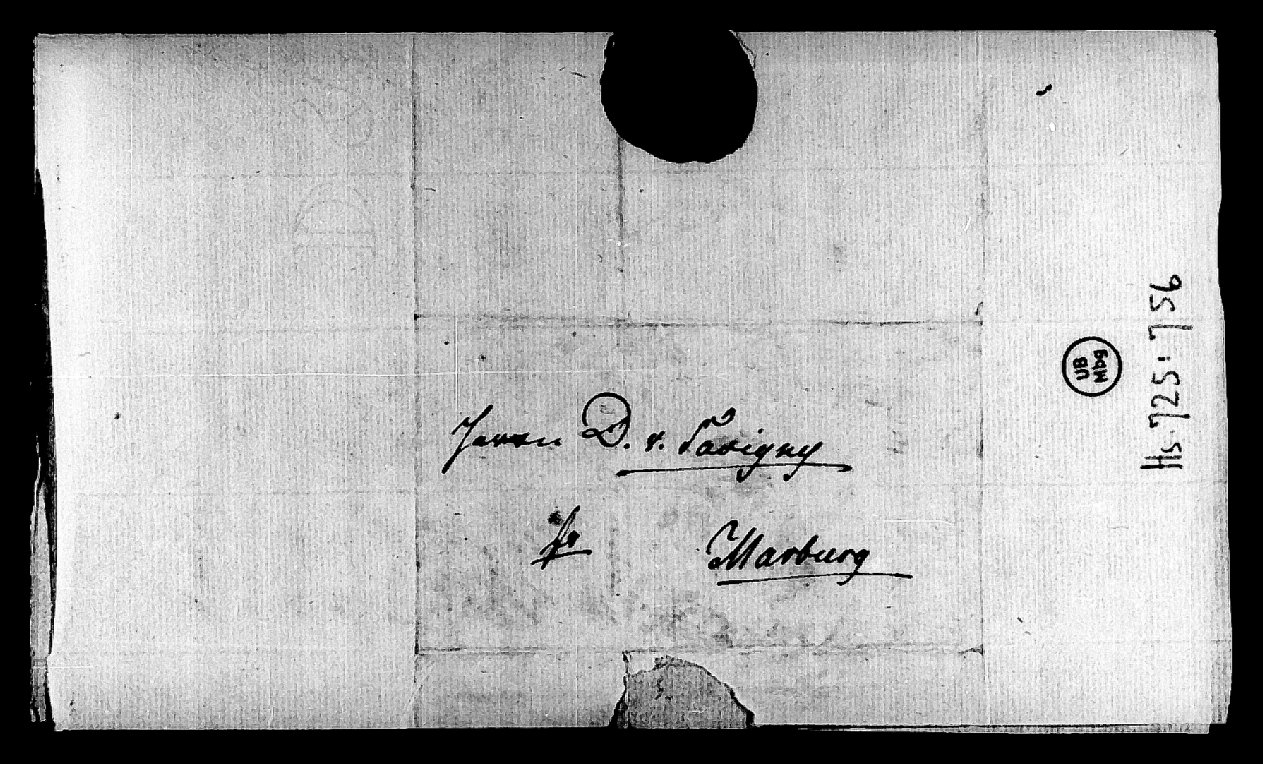 Herrn D. v. Savigny
fr Marburg
UB
Mbg
Hs. 725:756